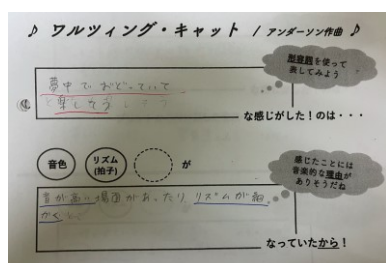 ♪ ワルツィング・キャット / アンダーソン作曲 ♪
形容詞を使って
表してみよう
夢中でおどっていて
楽しそう
な感じがした!のは・・・
音色
リズム
(拍子)
が
感じたことには
音楽的な理由が
ありそうだね
音が高い場面があったり、リズムが細
かく
なっていたから!